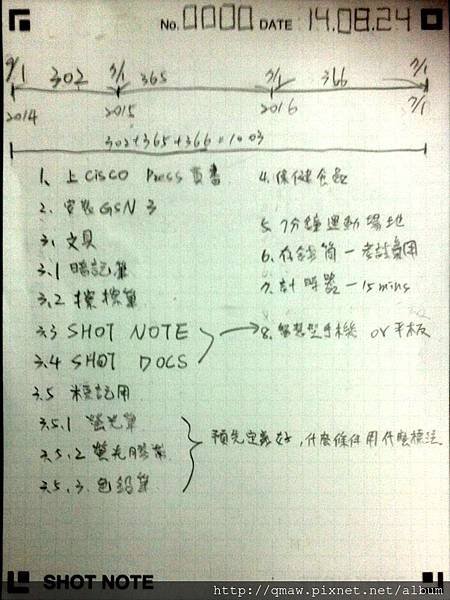 No. 0000 DATE 14.08.24
9/1 302 7/1 365 7/1 366 7/1
2014 2015 2016 7/1
302+365+366=1033
1. 上 CISCO Press 買書
2. 安裝 GSN 3
3. 文具
3.1 暗記筆
3.2 擦擦筆
3.3 SHOT NOTE
3.4 SHOT DOCS
3.5 標記用
3.5.1 螢光筆
3.5.2 螢光膠帶
3.5.3 色鉛筆
預先定義好,什麼條件用什麼標法
4. 保健食品
5. 7分鐘運動場地
6. 存錢筒 - 考試費用
7. 計時器 - 15 mins
8. 智慧型手機 or 平板
SHOT NOTE
http://qmaw.pixnet.net/album